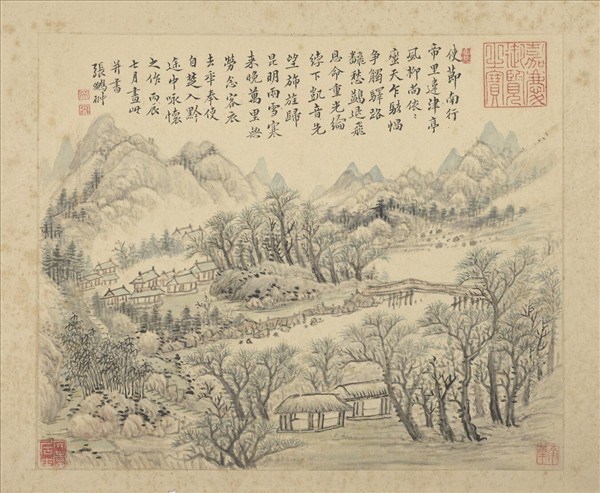 使節南行
帝里遙津亭
風柳尚依〻
天乍駭蝸
爭觸驛路
飜愁鷁退飛
恩命重光綸
綍下凱音先
望旆旌歸
昆明雨雪寒
來晚萬里無
勞念客衣
去年奉使
自楚入黔
途中詠懷
之作丙辰
七月畫此
并書
張鵬翀
嘉慶
御覽
之寶